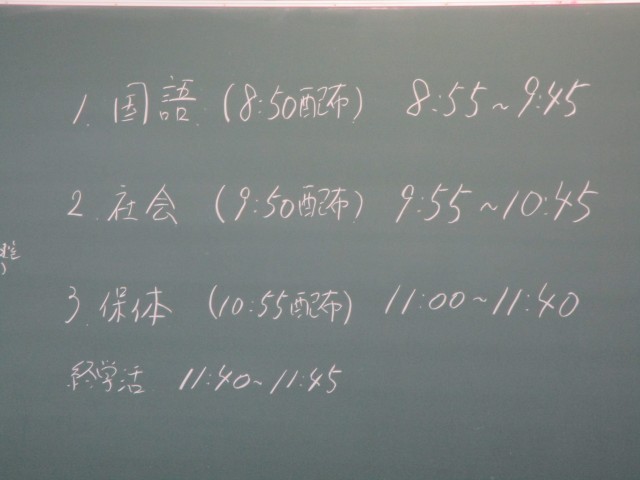 1. 国語 (8:50配布) 8:55~9:45
2. 社会 (9:50配布) 9:55~10:45
3. 保体 (10:55配布) 11:00~11:40
終学活 11:40~11:45